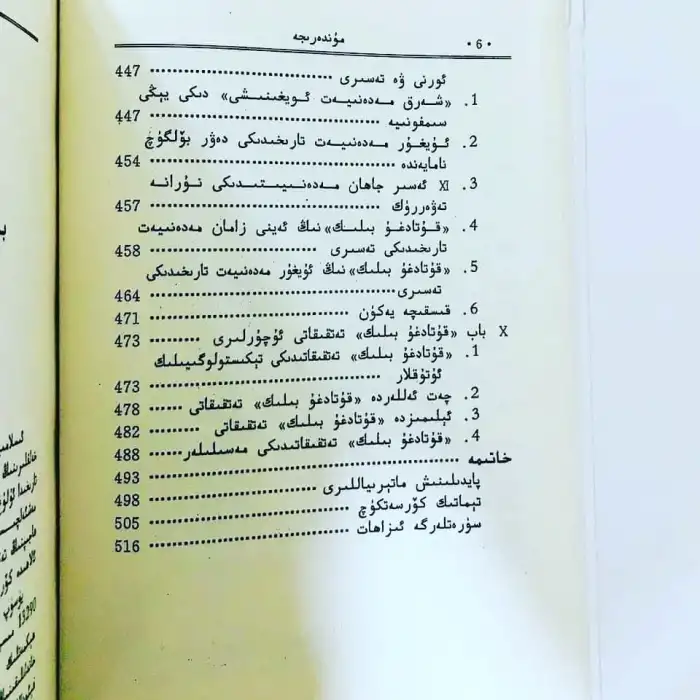 مۇندەرىجە · 6 ·
ئورنى ۋە تەسىرى 447
1. «شەرق مەدەنىيەت ئويغىنىشى» دىكى يېڭى
سىمفونىيە 447
2. ئۇيغۇر مەدەنىيەت تارىخىدىكى دەۋر بۆلگۈچ
نامايەندە 454
3. XI ئەسىر جاھان مەدەنىيىتىدىكى نۇرانە
تەۋەررۈك 457
4. «قۇتادغۇ بىلىك» نىڭ ئەينى زامان مەدەنىيەت
تارىخىدىكى تەسىرى 458
5. «قۇتادغۇ بىلىك» نىڭ ئۇيغۇر مەدەنىيەت تارىخىدىكى
تەسىرى 464
6. قىسقىچە يەكۈن 471
X باب «قۇتادغۇ بىلىك» تەتقىقاتى ئۇچۇرلىرى 473
1. «قۇتادغۇ بىلىك» تەتقىقاتىدىكى تېكىستولوگىيىلىك
ئۇتۇقلار 473
2. چەت ئەللەردە «قۇتادغۇ بىلىك» تەتقىقاتى 478
3. ئېلىمىزدە «قۇتادغۇ بىلىك» تەتقىقاتى 482
4. «قۇتادغۇ بىلىك» تەتقىقاتىدىكى مەسىلىلەر 488
خاتىمە 493
پايدىلىنىش ماتېرىياللىرى 498
تېماتىك كۆرسەتكۈچ 505
سۈرەتلەرگە ئىزاھات 516